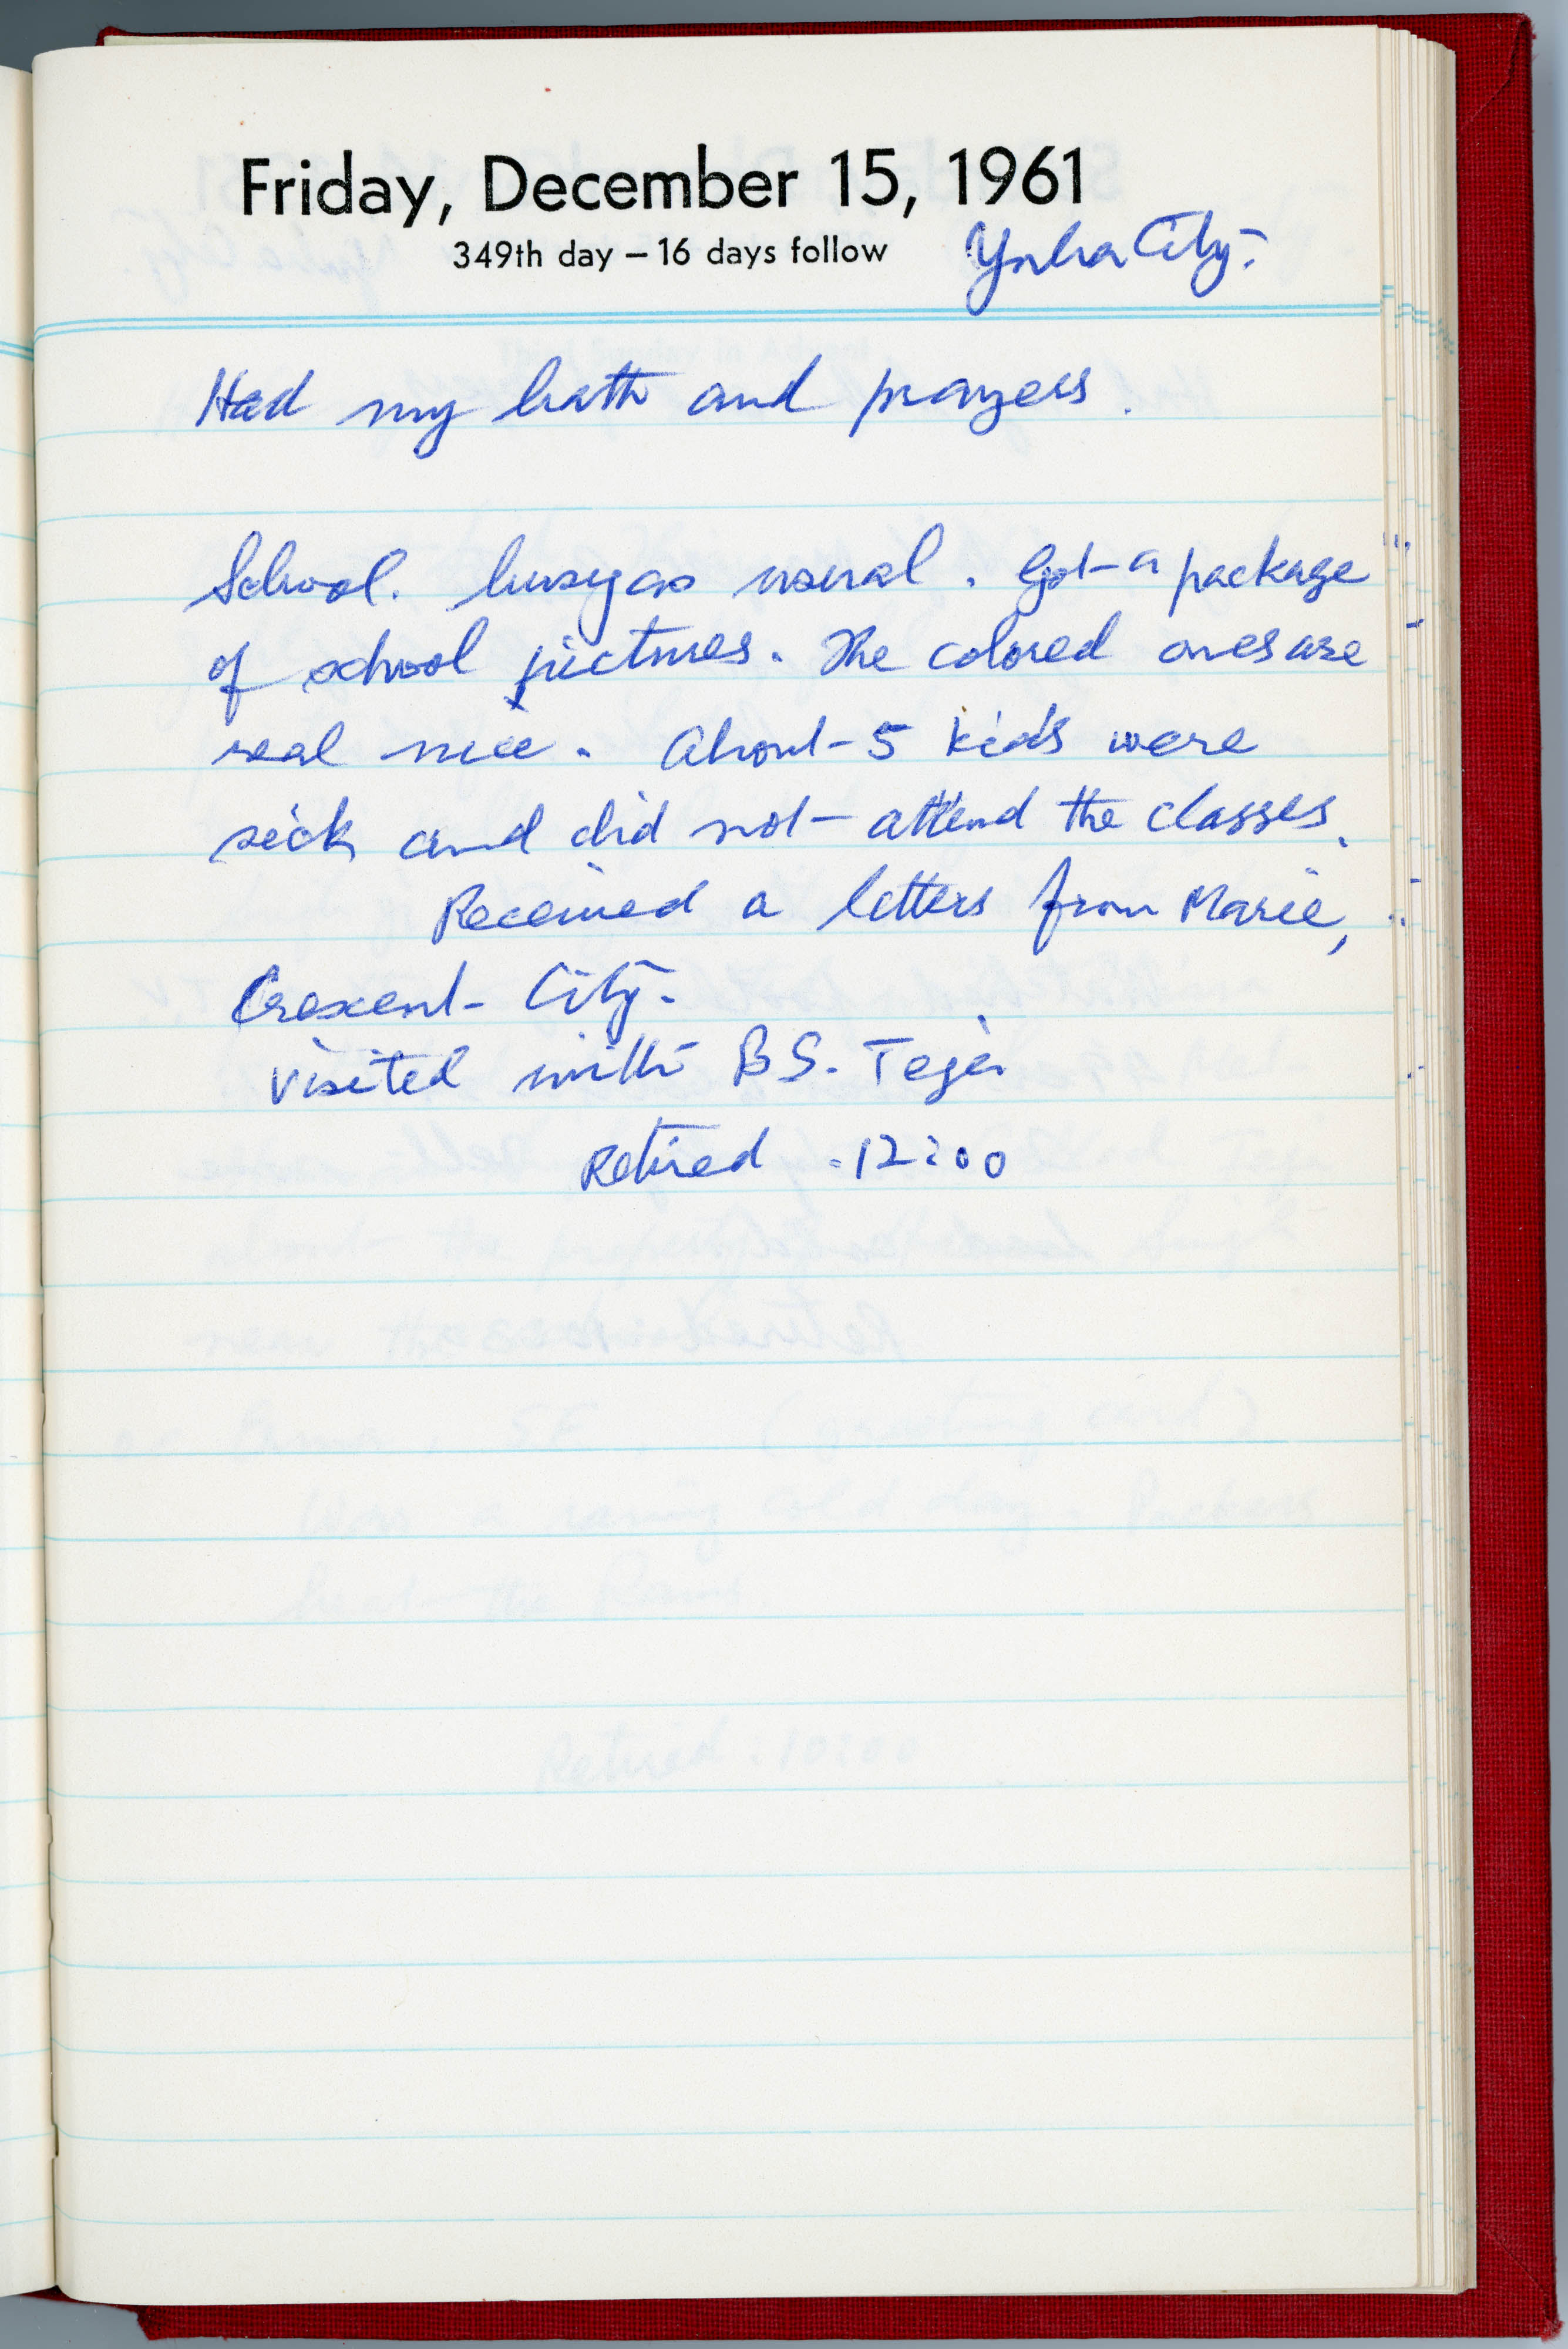 Friday, December 15, 1961
349th day – 16 days follow Yuba City.
Had my bath and prayers.
School. busy as usual. Got a package
of school pictures. The colored ones are
real nice. About 5 kids were
sick and did not attend the classes.
Received a letters from Marie,
Crescent City.
visited with B.S. Teja
Retired . 12:00